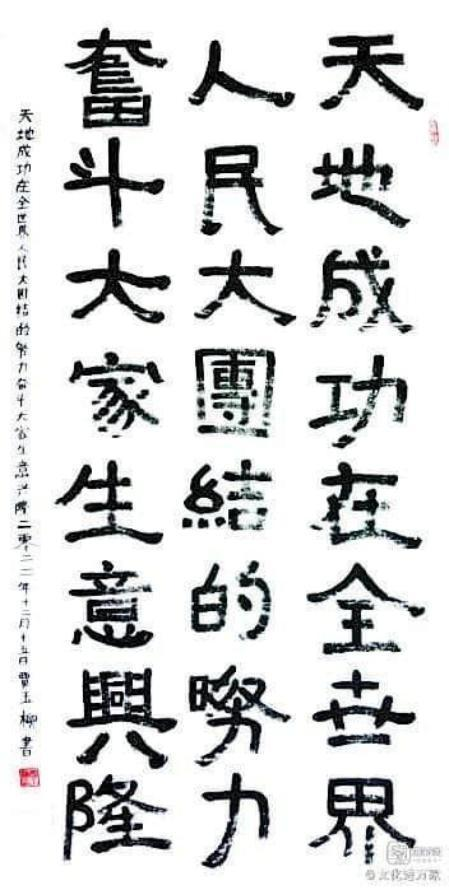 天地成功在全世界
人民大團結的努力
奮斗大家生意興隆
天地成功在全世界人民大团结的努力奋斗大家生意兴隆二零二二年十二月十五日賈玉柳書